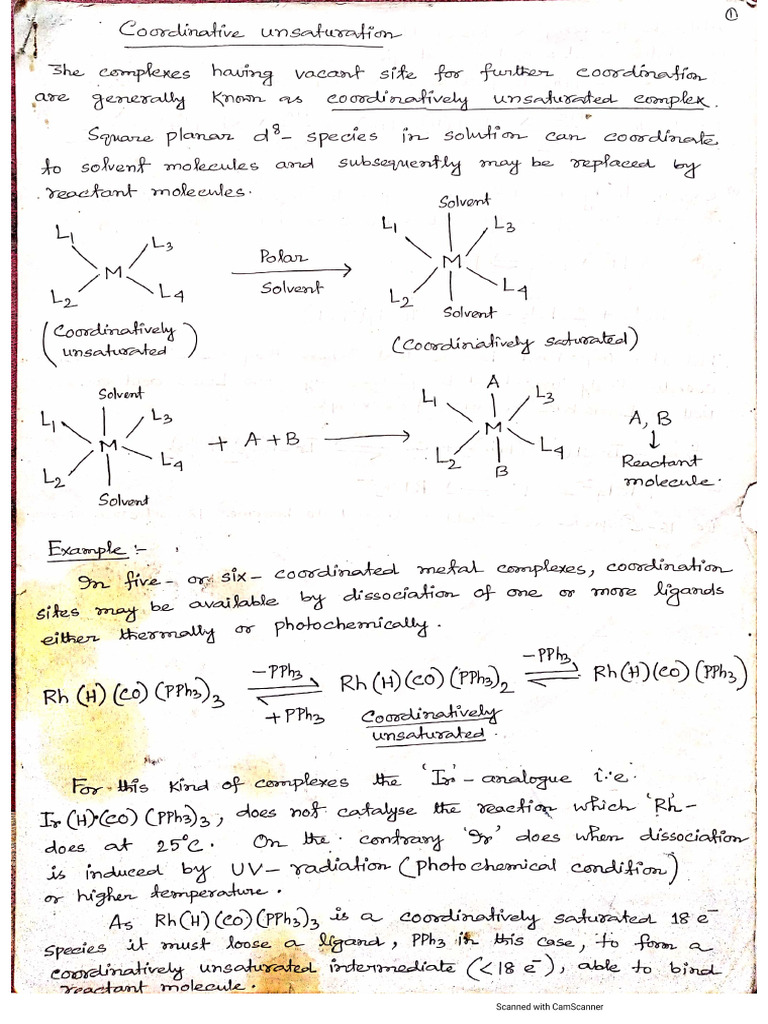 ①
Coordinative unsaturation
The complexes having vacant site for further coordination
are generally known as coordinatively unsaturated complex.
Square planar d⁸- species in solution can coordinate
to solvent molecules and subsequently may be replaced by
reactant molecules.
L1 L3 M L2 L4
Polar
Solvent
Solvent
L1 L3 M L2 L4
Solvent
(Coordinatively
unsaturated)
(Coordinatively saturated)
Solvent
L1 L3 M L2 L4
Solvent
+ A + B
A
L1 L3 M L2 L4
B
A, B
↓
Reactant
molecule.
Example :-
In five- or six- coordinated metal complexes, coordination
sites may be available by dissociation of one or more ligands
either thermally or photochemically.
Rh (H) (CO) (PPh3)3 −PPh3 ⇌ +PPh3 Rh (H) (CO) (PPh3)2 −PPh3 ⇌ Rh (H) (CO) (PPh3)
Coordinatively
unsaturated.
For this kind of complexes the 'Ir'- analogue i.e.
Ir (H) (CO) (PPh3)3, does not catalyse the reaction which 'Rh'-
does at 25°C. On the contrary 'Ir' does when dissociation
is induced by UV- radiation (photochemical condition)
or higher temperature.
As Rh(H)(CO)(PPh3)3 is a coordinatively saturated 18 e⁻
species it must loose a ligand, PPh3 in this case, to form a
coordinatively unsaturated intermediate (<18 e⁻), able to bind
reactant molecule.
Scanned with CamScanner